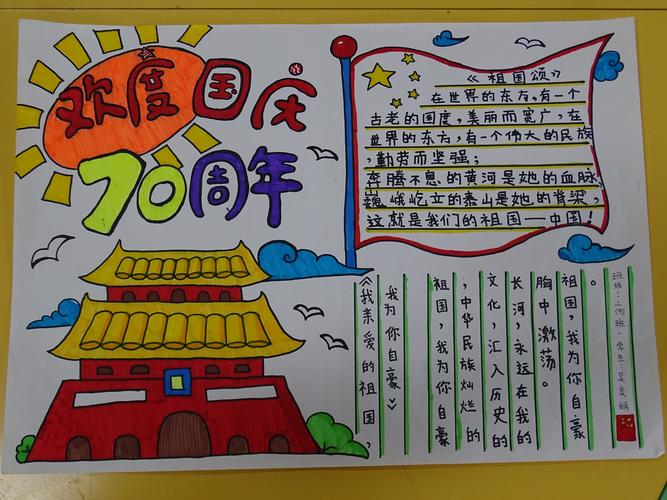 欢度国庆
70周年
《祖国颂》
在世界的东方，有一个
古老的国度，美丽而宽广，在
世界的东方，有一个伟大的民族
，勤劳而坚强；
奔腾不息的黄河是她的血脉，
巍峨屹立的泰山是她的脊梁，
这就是我们的祖国——中国！
《我亲爱的祖国，
我为你自豪》
祖国，我为你自豪
，中华民族灿烂的
文化，汇入历史的
长河，永远在我的
胸中激荡。
祖国，我为你自豪
。
班级：二(9)班·学生：吴